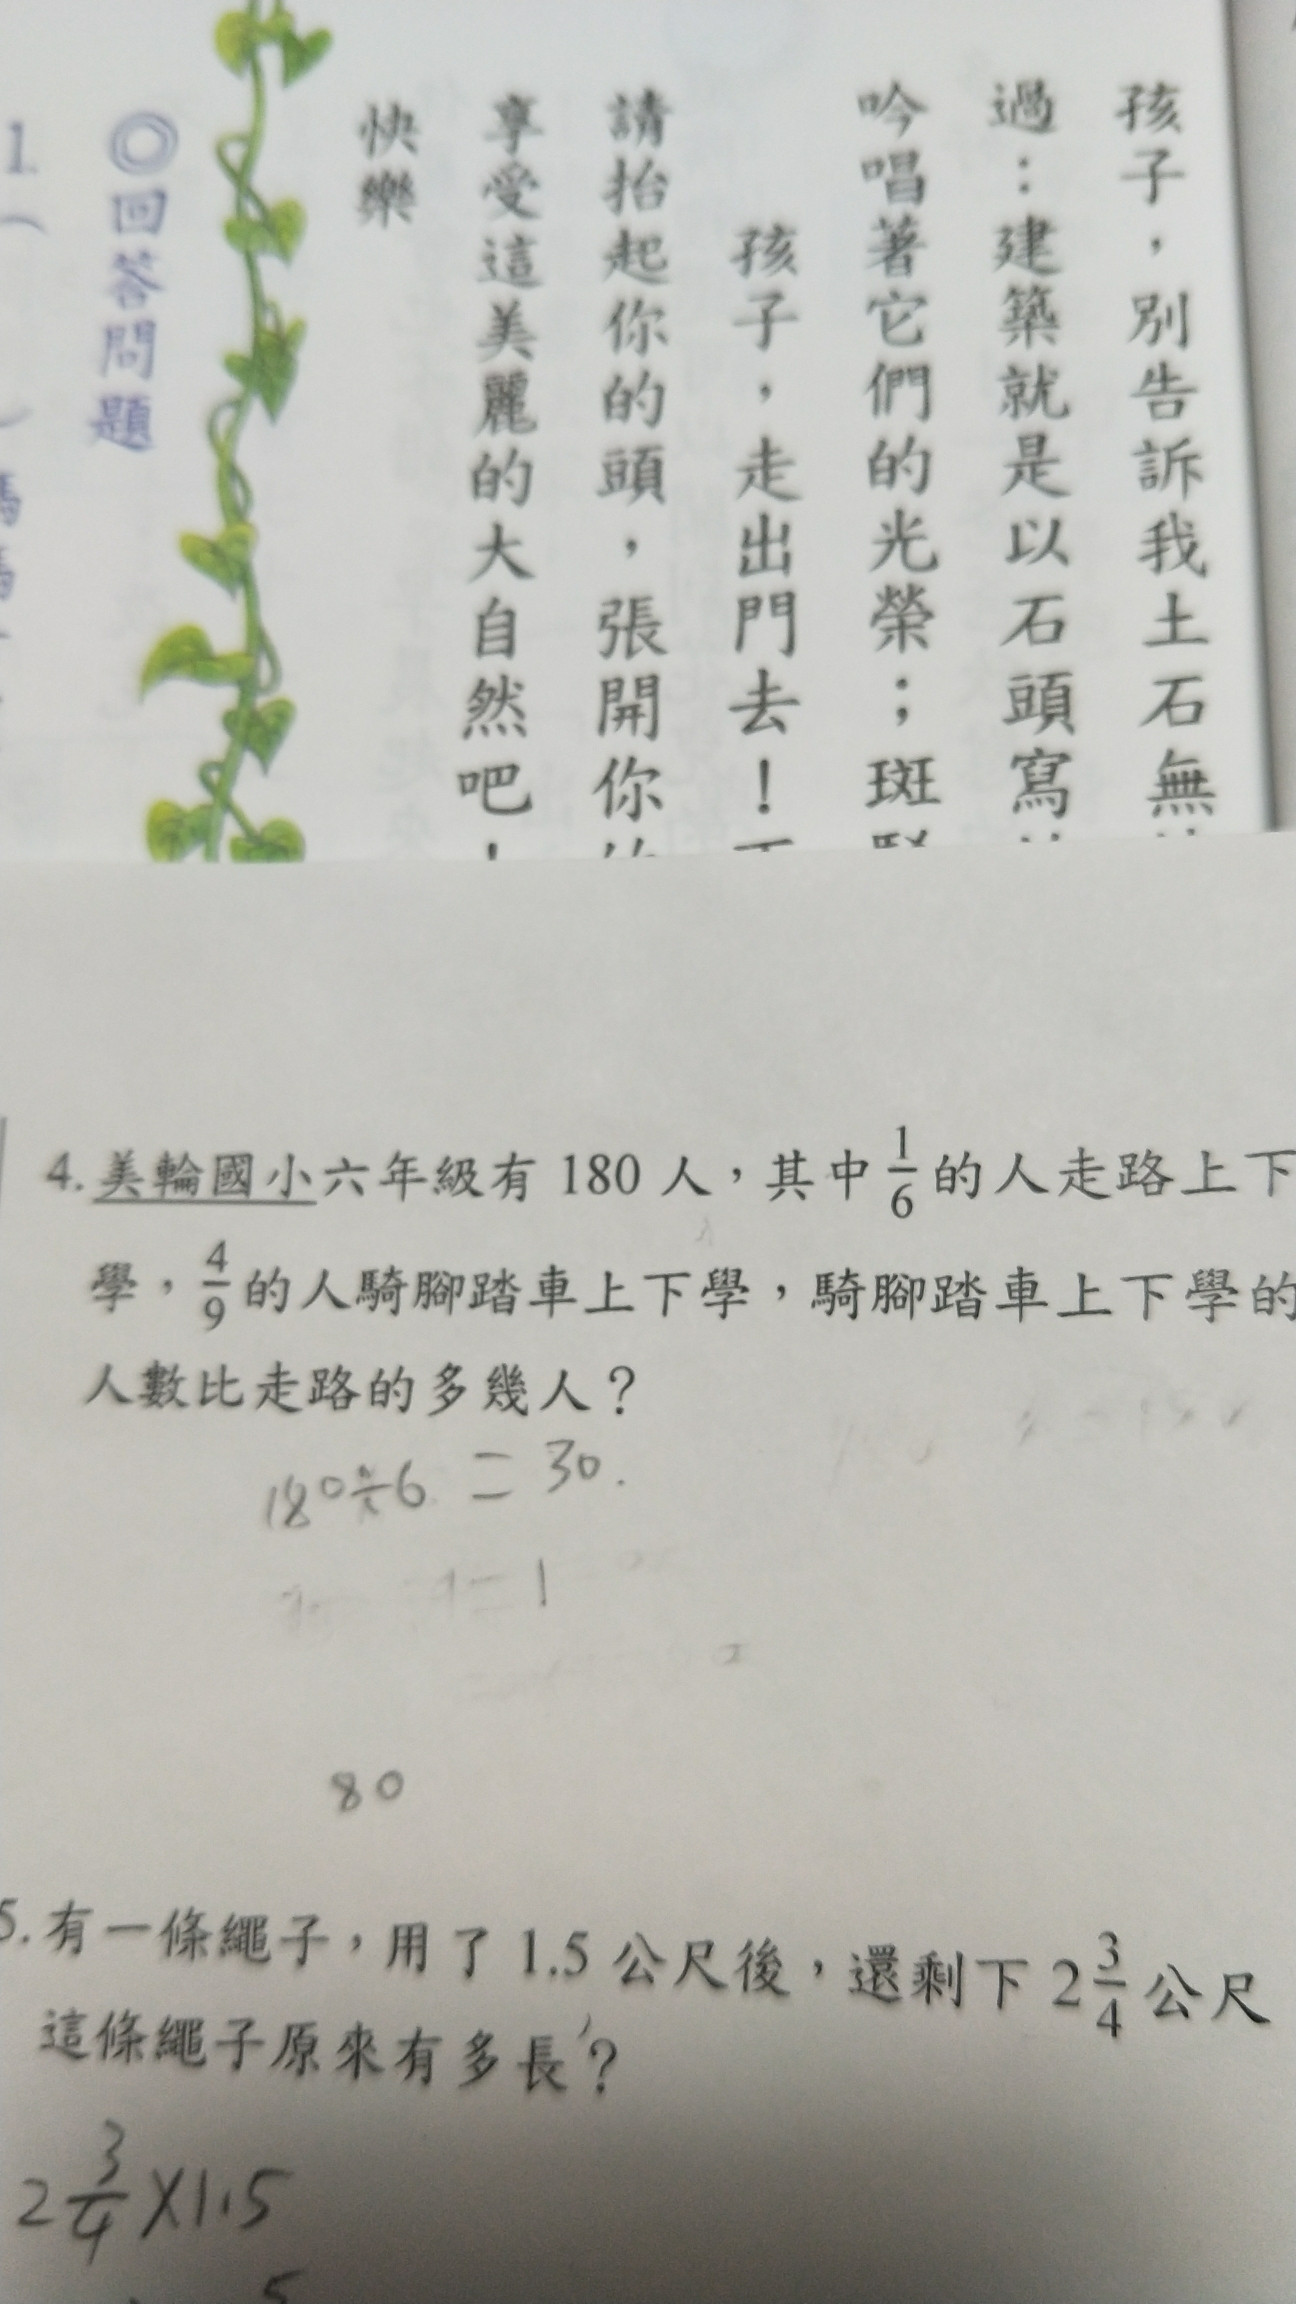 孩子，別告訴我土石無
過：建築就是以石頭寫
吟唱著它們的光榮；斑
孩子，走出門去！
請抬起你的頭，張開你
享受這美麗的大自然吧！
快樂
◎回答問題
1.（　）媽媽
4.美輪國小六年級有 180 人，其中 1/6 的人走路上下
學，4/9 的人騎腳踏車上下學，騎腳踏車上下學的
人數比走路的多幾人？
180÷6 = 30.
80
5.有一條繩子，用了 1.5 公尺後，還剩下 2 3/4 公尺
這條繩子原來有多長？
2 3/4 ×1.5
5